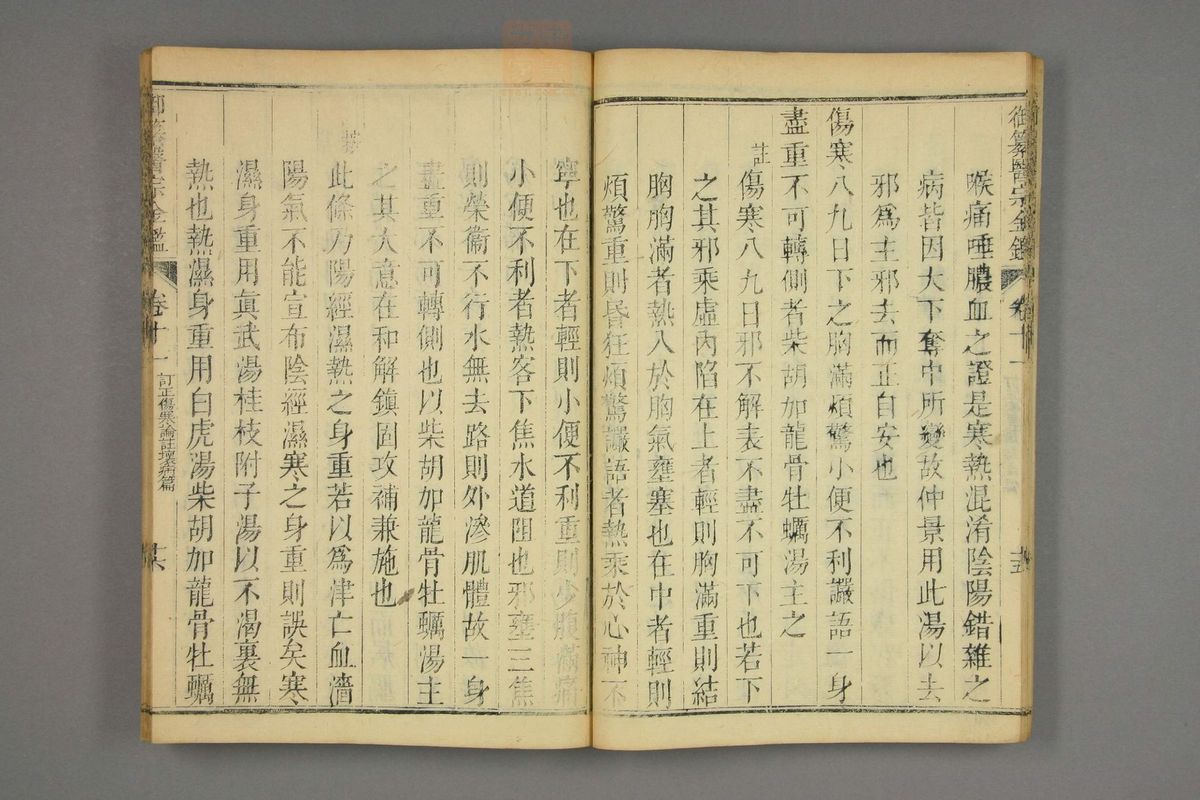 御纂醫宗金鑑 卷十一 十五
喉痛唾膿血之證是寒熱混淆陰陽錯雜之
病皆因大下奪中所變故仲景用此湯以去
邪爲主邪去而正自安也
傷寒八九日下之胸滿煩驚小便不利讝語一身
盡重不可轉側者柴胡加龍骨牡蠣湯主之
註傷寒八九日邪不解表不盡不可下也若下
之其邪乘虛內陷在上者輕則胸滿重則結
胸胸滿者熱入於胸氣壅塞也在中者輕則
煩驚重則昏狂煩驚讝語者熱乘於心神不
寧也在下者輕則小便不利重則少腹滿痛
小便不利者熱客下焦水道阻也邪壅三焦
則榮衞不行水無去路則外滲肌體故一身
盡重不可轉側也以柴胡加龍骨牡蠣湯主
之其大意在和解鎮固攻補兼施也
按此條乃陽經濕熱之身重若以爲津亡血濇
陽氣不能宣布陰經濕寒之身重則誤矣寒
濕身重用眞武湯桂枝附子湯以不渴裏無
熱也熱濕身重用白虎湯柴胡加龍骨牡蠣
御纂醫宗金鑑 卷十一 訂正傷寒論註壞病篇 十六